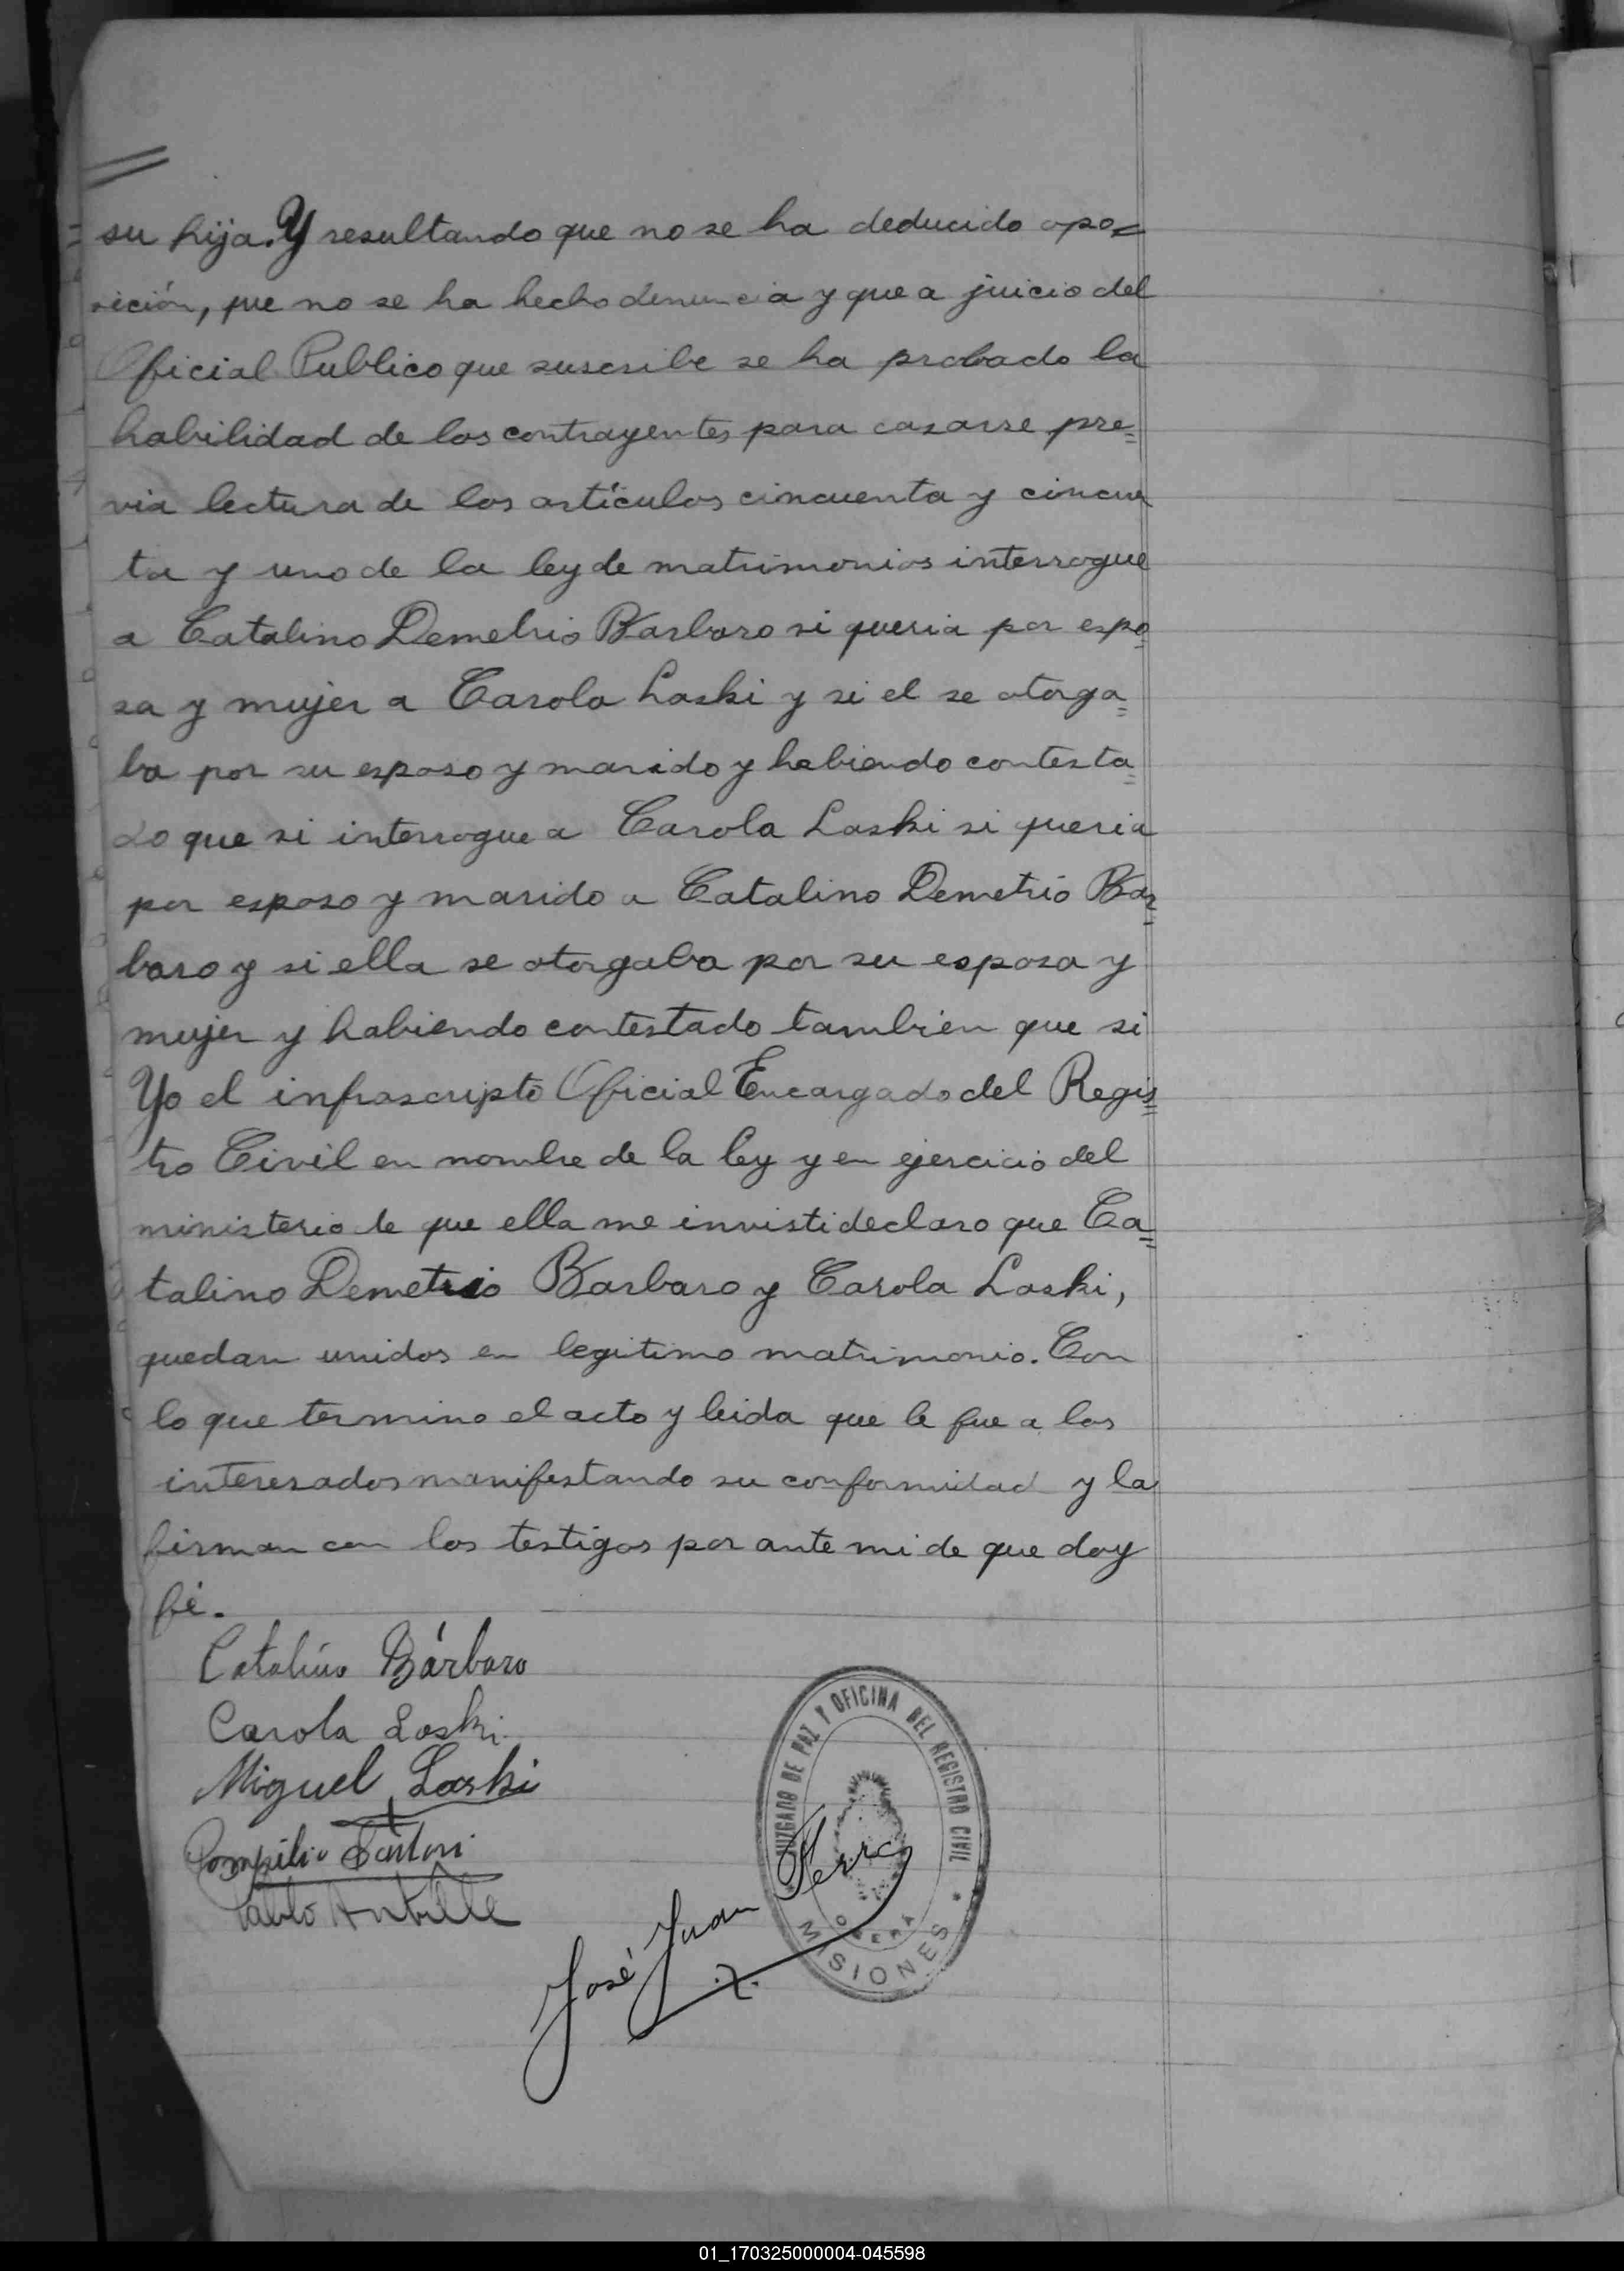 su hija. Y resultando que no se ha deducido opo=
sición, que no se ha hecho denuncia y que a juicio del
Oficial Publico que suscribe se ha probado la
habilidad de los contrayentes para casarse pre=
via lectura de los artículos cincuenta y cincuen
ta y uno de la ley de matrimonios interrogue
a Catalino Demetrio Barbaro si queria por espo=
sa y mujer a Carola Laski y si el se otorga=
ba por su esposo y marido y habiendo contesta=
do que si interrogue a Carola Laski si queria
por esposo y marido a Catalino Demetrio Bar=
baro y si ella se otorgaba por su esposa y
mujer y habiendo contestado tambien que si
Yo el infrascripto Oficial Encargado del Regis=
tro Civil en nombre de la ley y en ejercicio del
ministerio de que ella me invisti declaro que Ca=
talino Demetrio Barbaro y Carola Laski,
quedan unidos en legitimo matrimonio. Con
lo que termino el acto y leida que le fue a los
interesados manifestando su conformidad y la
firman con los testigos por ante mi de que doy
fé.
Catalino Bárbaro
Carola Laski
Miguel Laski
Pompilio
Pablo
José Juan Ferra
JUZGADO DE PAZ Y OFICINA DEL REGISTRO CIVIL
OBERÁ
MISIONES
01_170325000004-045598